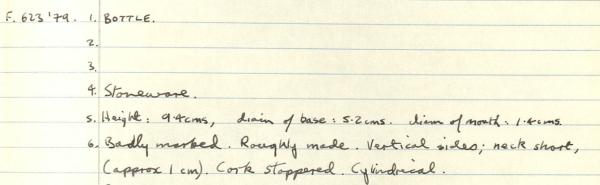 F. 623 '79. 1. BOTTLE.
2.
3.
4. Stoneware.
5. Height: 9.4cms, diam of base: 5.2cms. diam of mouth: 1.4cms.
6. Badly marked. Roughly made. Vertical sides; neck short,
(approx 1 cm). Cork stoppered. Cylindrical.